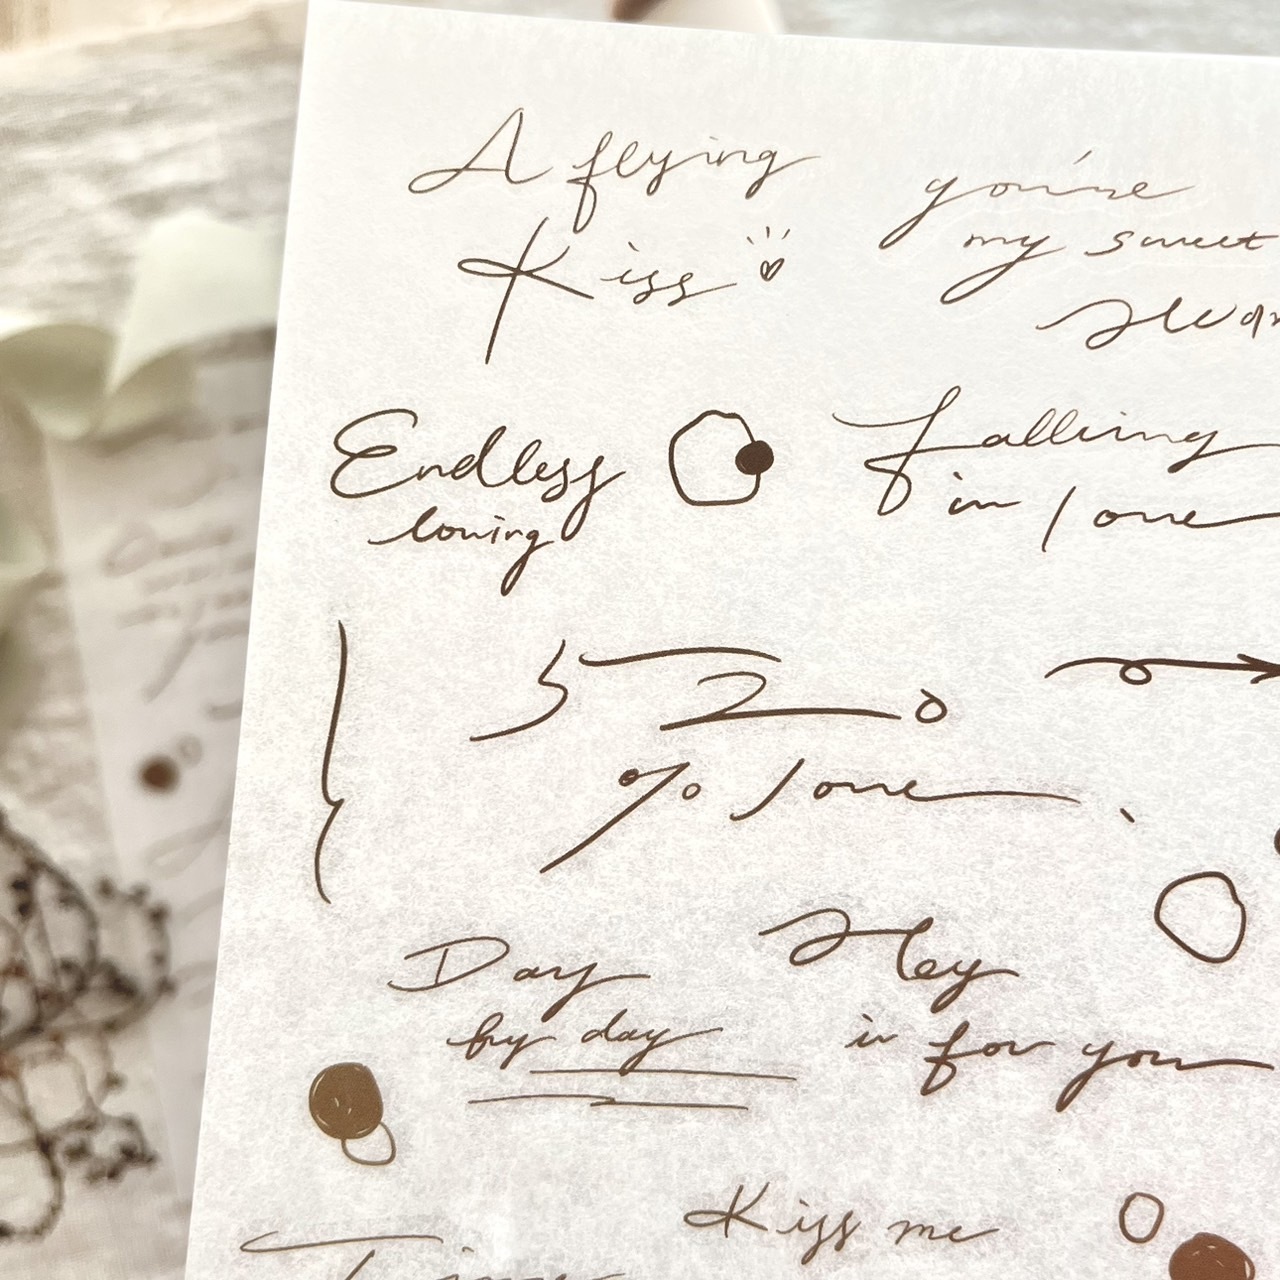 A flying
Kiss
you're
my sweet
Endless
loving
falling
in love
520
% love
Day
by day
Hey
is for you
Kiss me